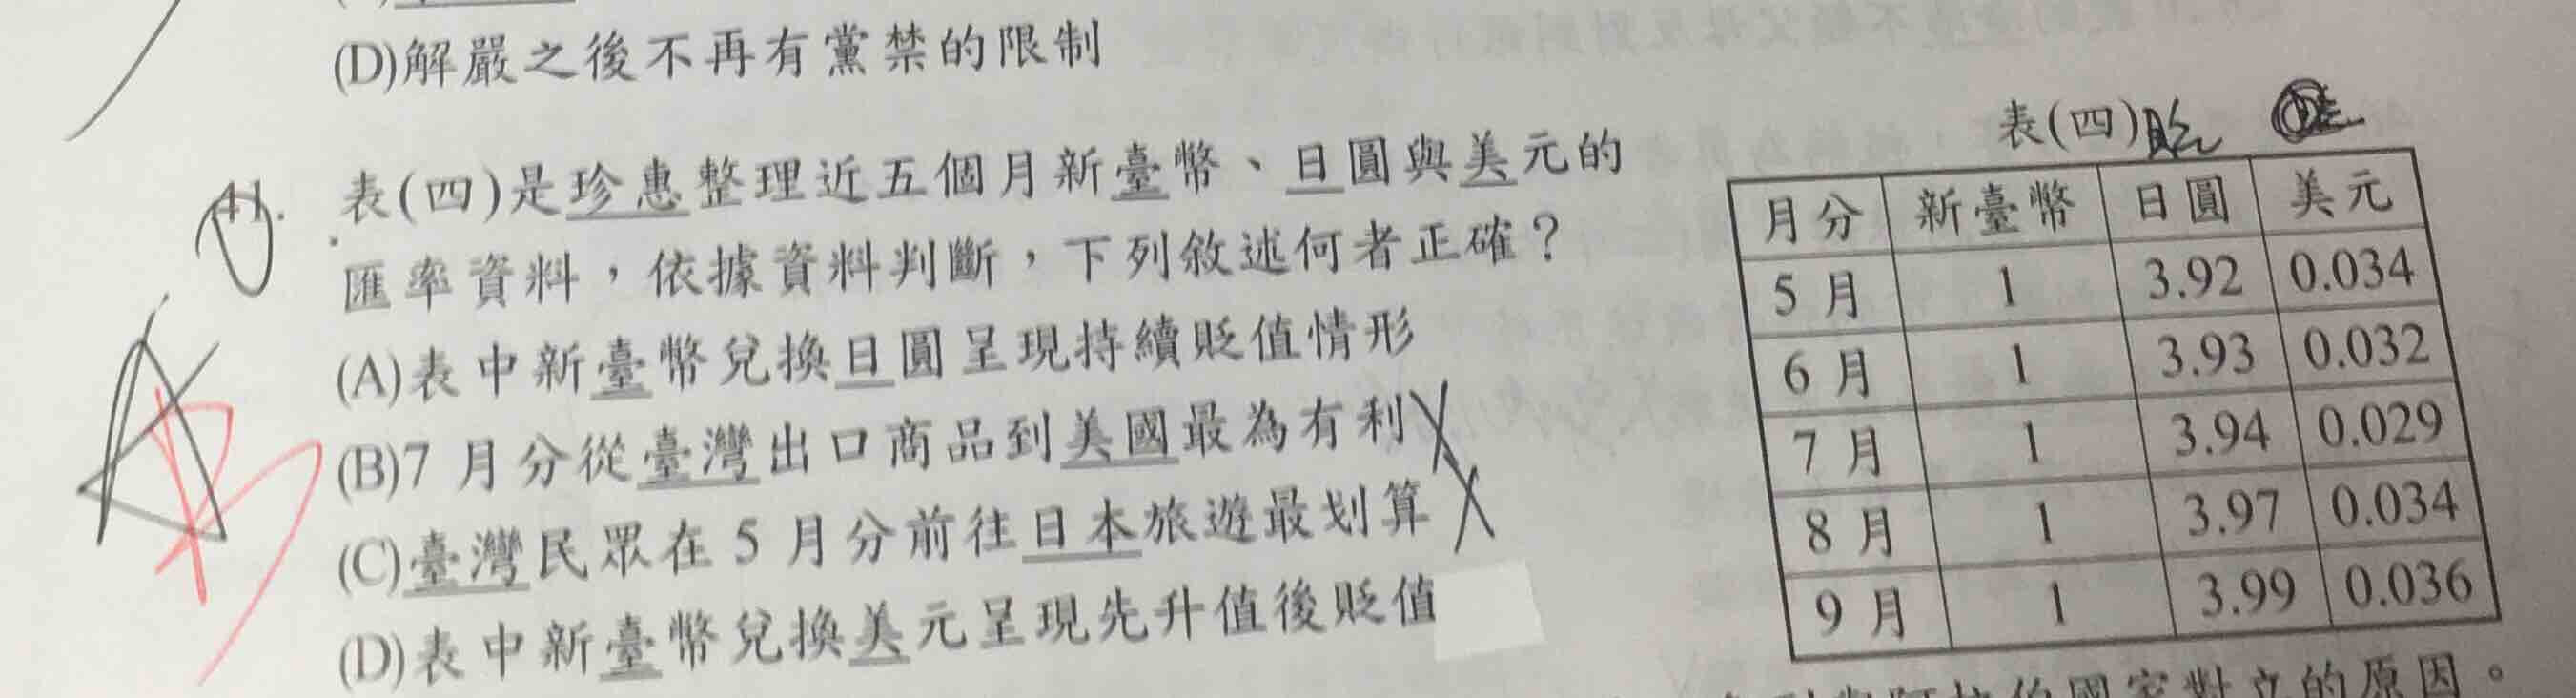 (D)解嚴之後不再有黨禁的限制
41. 表(四)是珍惠整理近五個月新臺幣、日圓與美元的
匯率資料，依據資料判斷，下列敘述何者正確？
(A)表中新臺幣兌換日圓呈現持續貶值情形
(B)7月分從臺灣出口商品到美國最為有利
(C)臺灣民眾在5月分前往日本旅遊最划算
(D)表中新臺幣兌換美元呈現先升值後貶值
A
B
表(四) 貶
月分 新臺幣 日圓 美元
5月 1 3.92 0.034
6月 1 3.93 0.032
7月 1 3.94 0.029
8月 1 3.97 0.034
9月 1 3.99 0.036
國家對立的原因。